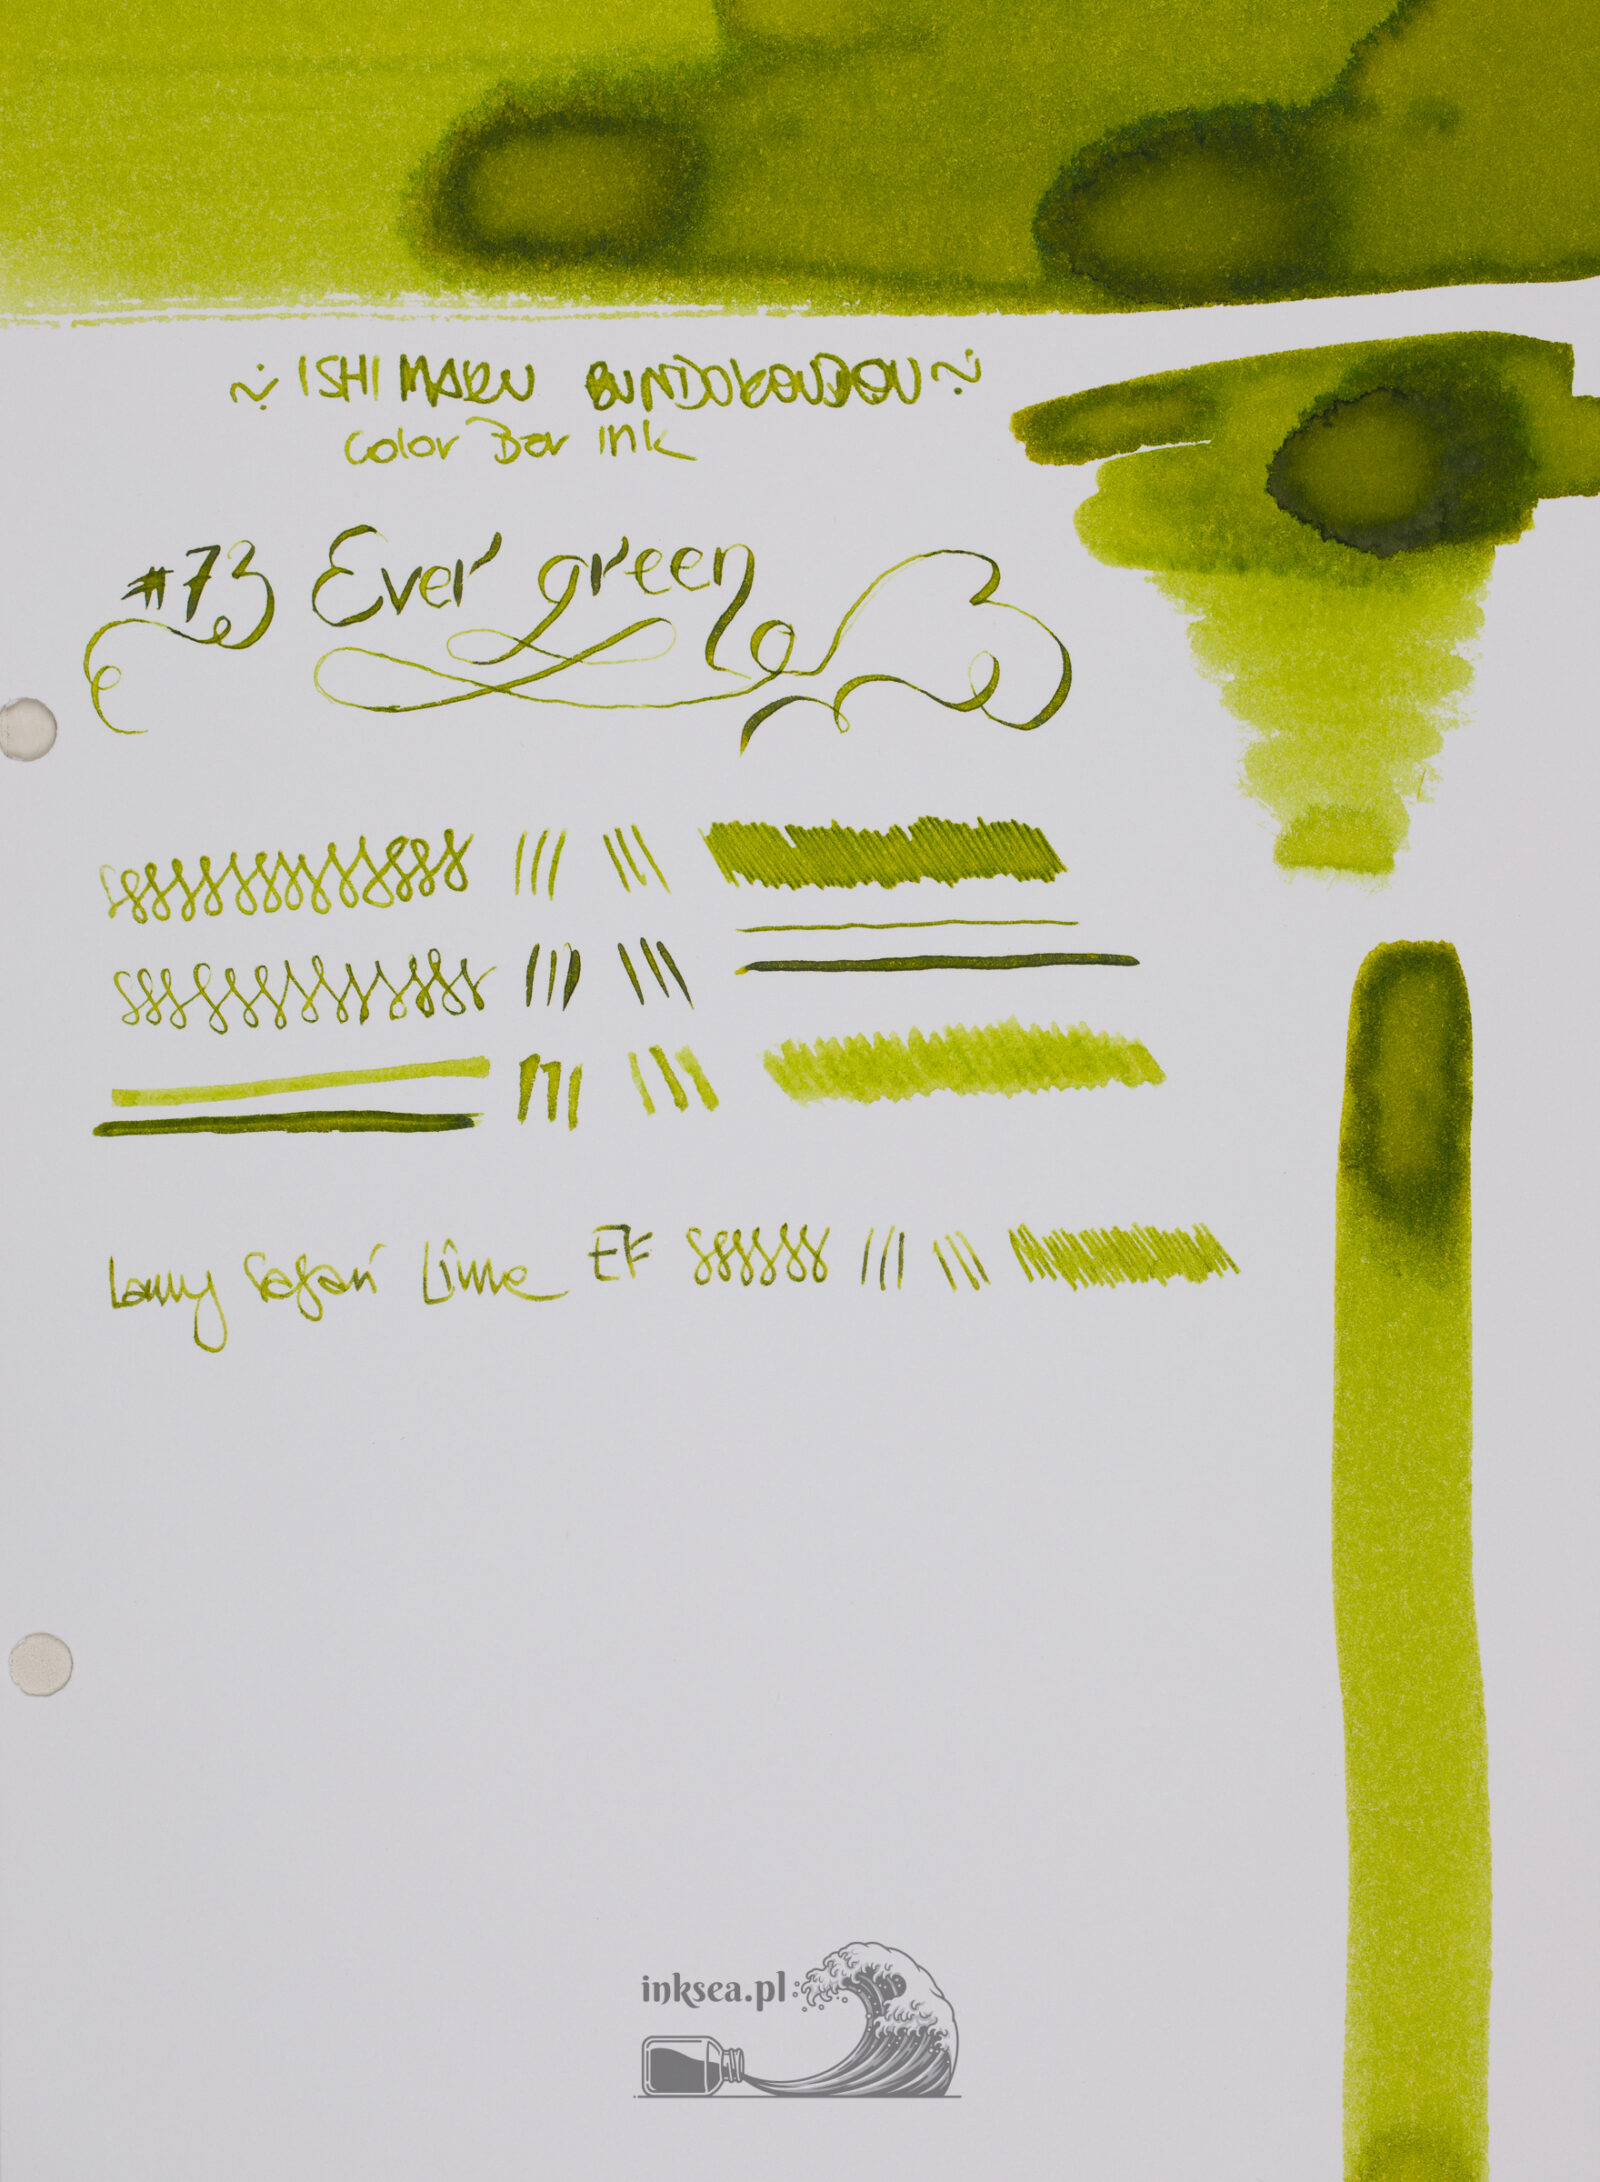 ~ ISHI MARU BUNDOKOUDOU ~
Color Bar Ink
#73 Ever green
Lamy Safari Lime EF
inksea.pl